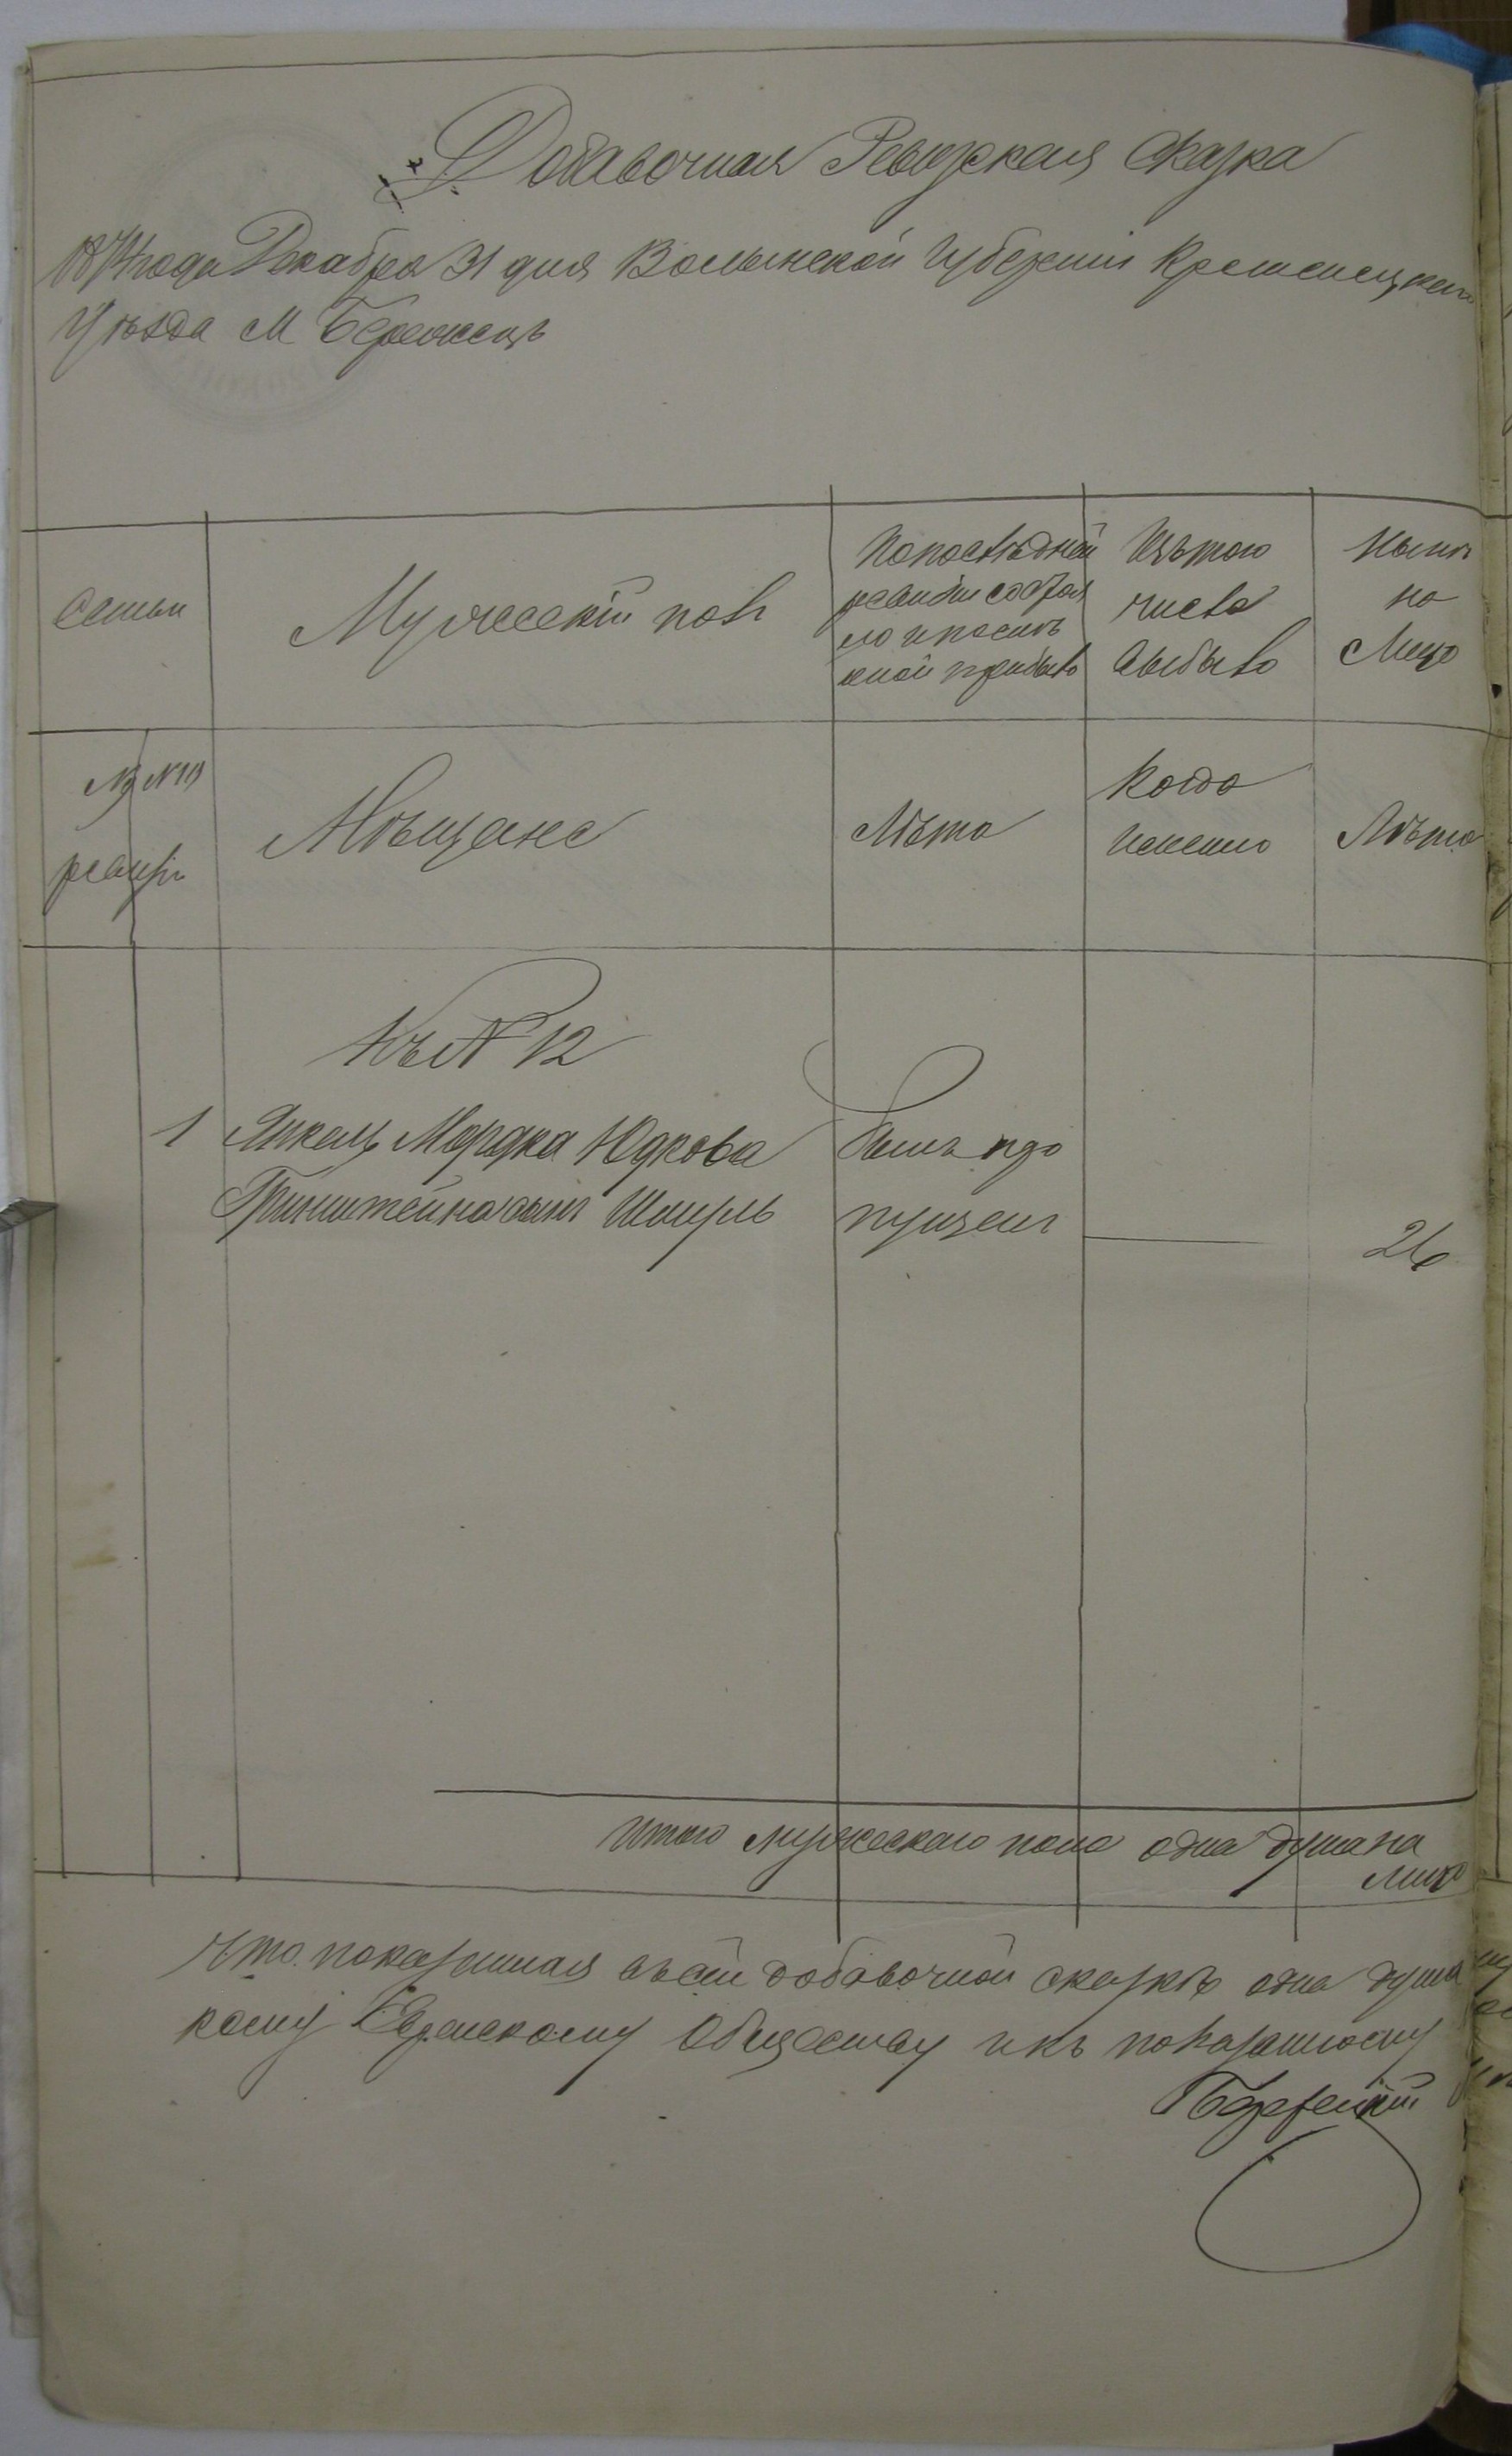 Добавочная Ревизская Сказка
1874 года Декабря 31 дня Волынской Губерніи Кременецкаго
Уѣзда М Бережецъ
Семьи
Мужескій полъ
По последней
ревизіи состоя
ло и после
оной прибыло
Изъ того
числа
выбыло
Нынѣ
на
Лицо
№ №
ревизіи
Мѣщане
Лѣта
Когда
именно
Лѣта
Къ № 12
1 Янкель Мордка Юдкова
Гринштейна сынъ Шмуль
былъ про
пущенъ
26
Итого мужескаго пола одна душа на
лицо
Что показанная въ сей добавочной сказкѣ одна душа
кому Еврейскому Обществу и къ показанному